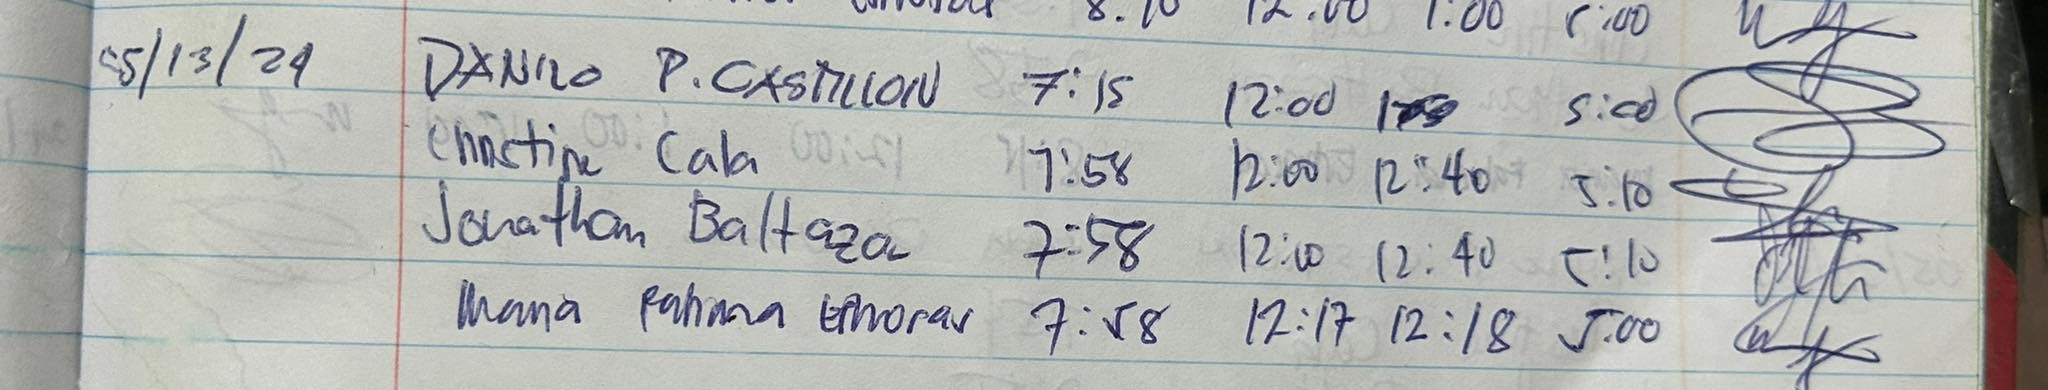 8:10 12:00 1:00 5:00
05/13/24 DANILO P. CASTILLON 7:15 12:00 5:00
Christine Cala 7:58 12:00 12:40 5:10
Jonathan Baltazar 7:58 12:00 12:40 5:10
Maria Fatima 7:58 12:17 12:18 5:00